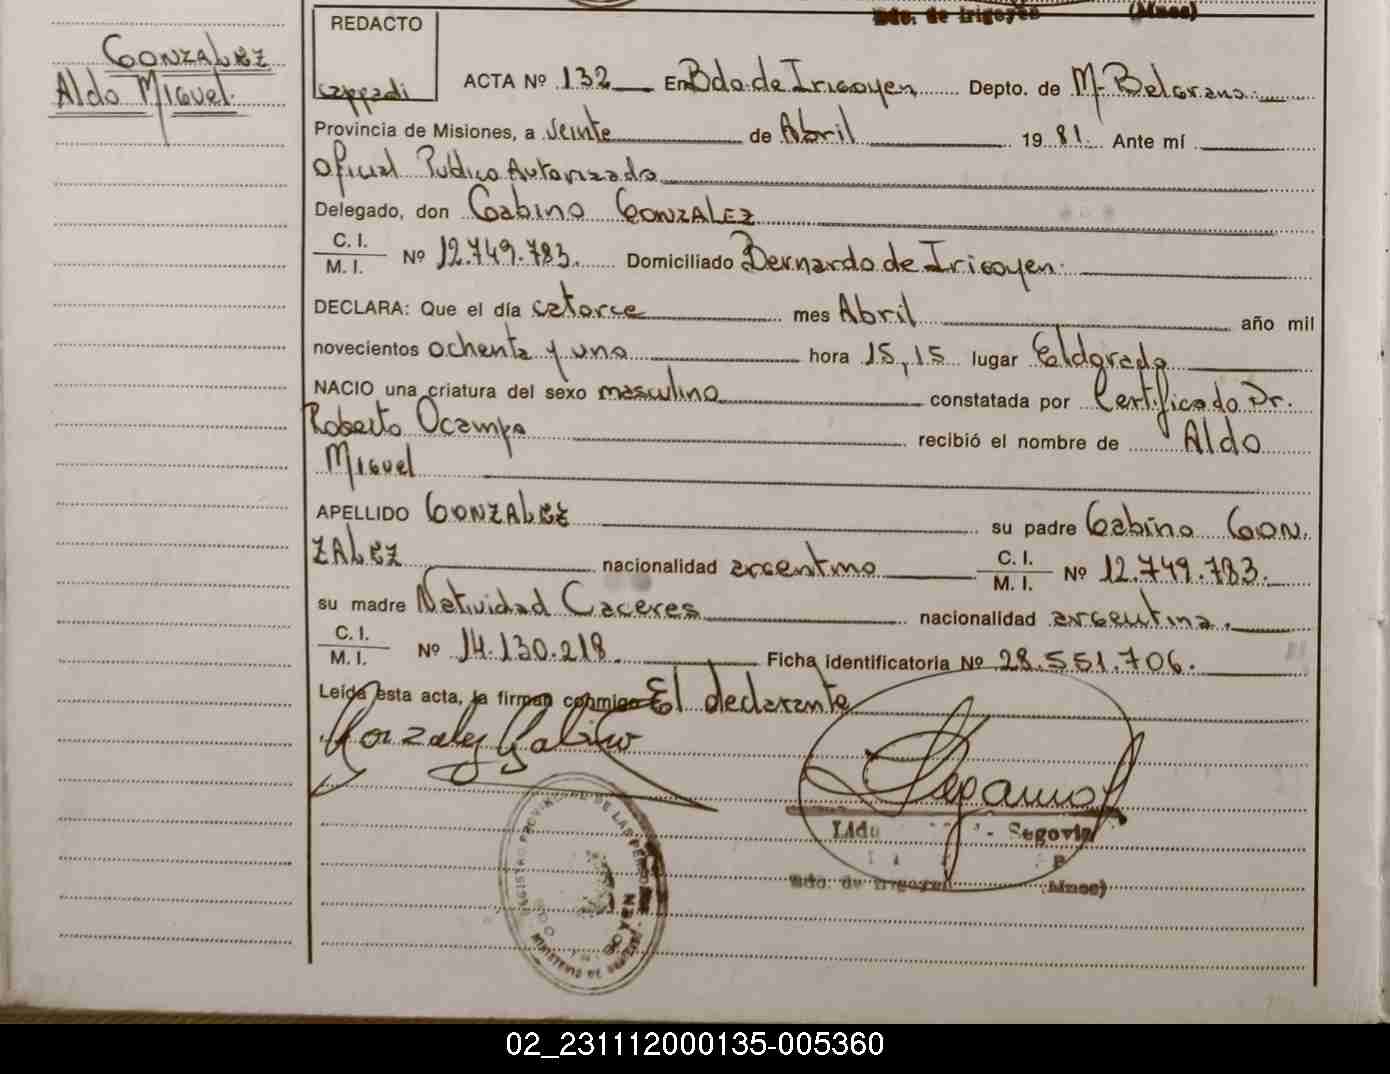 Bdo. de Irigoyen (Mnes)
REDACTO
GONZALEZ
Aldo Miguel.
cappadi
ACTA Nº 132 En Bdo. de Irigoyen Depto. de M. Belgrano.
Provincia de Misiones, a veinte de Abril 19 81. Ante mí
Oficial Publico Autorizado
Delegado, don Gabino GONZALEZ
C. I.
M. I. Nº 12.749.783. Domiciliado Bernardo de Irigoyen.
DECLARA: Que el día catorce mes Abril año mil
novecientos ochenta y uno hora 15,15 lugar Eldorado
NACIO una criatura del sexo masculino constatada por Certificado Dr.
Roberto Ocampo recibió el nombre de Aldo
Miguel
APELLIDO GONZALEZ su padre Gabino GON
ZALEZ nacionalidad argentino C. I.
M. I. Nº 12.749.783.
su madre Natividad Caceres nacionalidad argentina.
C. I.
M. I. Nº 14.130.218. Ficha identificatoria Nº 28.551.706.
Leída esta acta, la firman conmigo El declarante
Gonzalez Gabino
Segovia
Bdo. de Irigoyen Mnes)
REGISTRO PROVINCIAL DE LAS PERSONAS
MINISTERIO DE
02_231112000135-005360